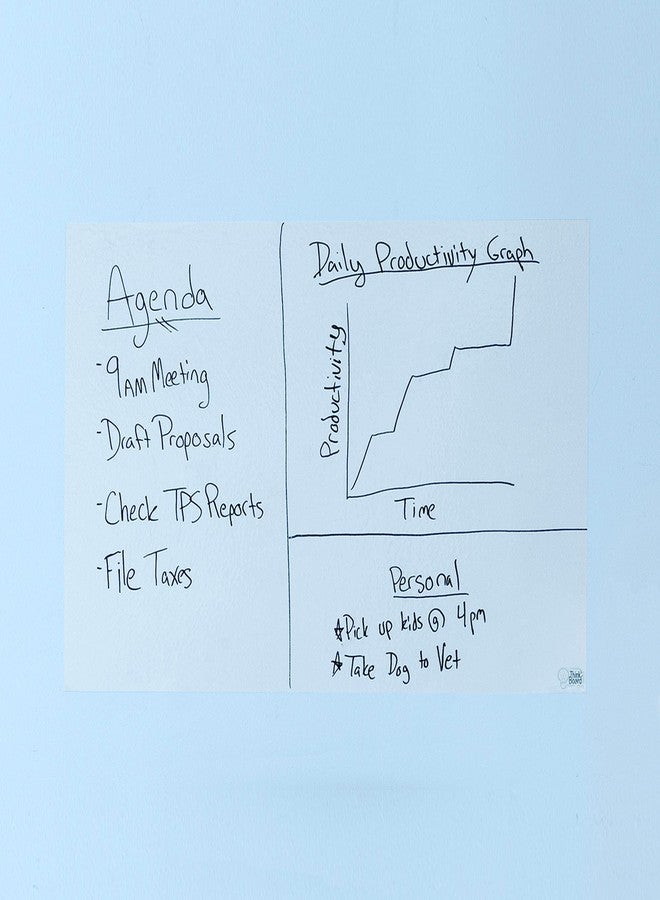 Agenda
-9AM Meeting
-Draft Proposals
-Check TPS Reports
-File Taxes
Daily Productivity Graph
Productivity
Time
Personal
☆Pick up kids @ 4pm
☆Take Dog to Vet
Think
Board